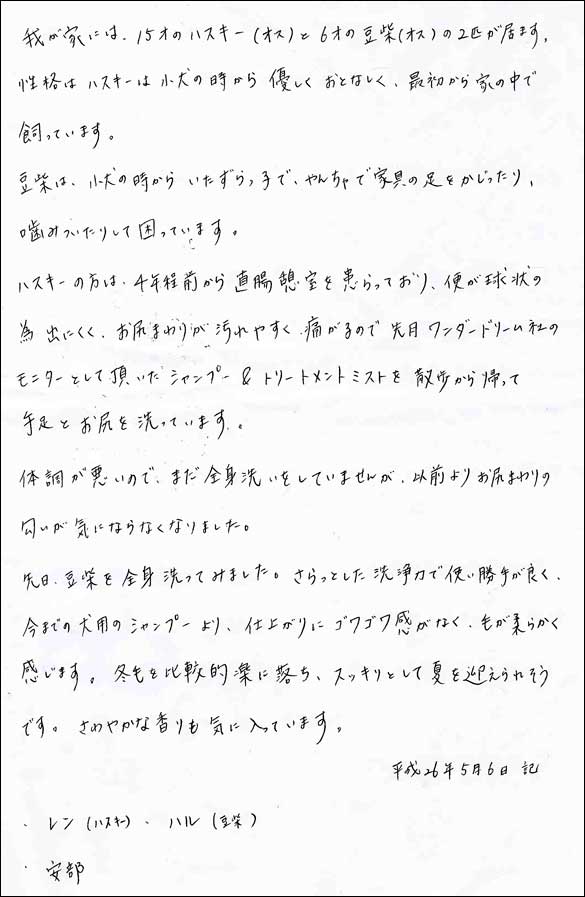 我が家には、15才のハスキー(オス)と6才の豆柴(オス)の2匹が居ます。
性格はハスキーは小犬の時から優しくおとなしく、最初から家の中で
飼っています。
豆柴は、小犬の時からいたずらっ子で、やんちゃで家具の足をかじったり、
噛みついたりして困っています。
ハスキーの方は、4年程前から直腸憩室を患らっており、便が球状の
為出にくく、お尻まわりが汚れやすく、痛がるので先月ワンダードリーム社の
モニターとして頂いたシャンプー&トリートメントミストを散歩から帰って
手足とお尻を洗っています。
体調が悪いので、まだ全身洗いをしていませんが、以前よりお尻まわりの
匂いが気にならなくなりました。
先日、豆柴を全身洗ってみました。さらっとした洗浄力で使い勝手が良く、
今までの犬用のシャンプーより、仕上がりにゴワゴワ感がなく、毛が柔らかく
感じます。冬毛も比較的楽に落ち、スッキリとして夏を迎えられそう
です。さわやかな香りも気に入っています。
平成26年5月6日 記
・レン(ハスキー)・ハル(豆柴)
・安部